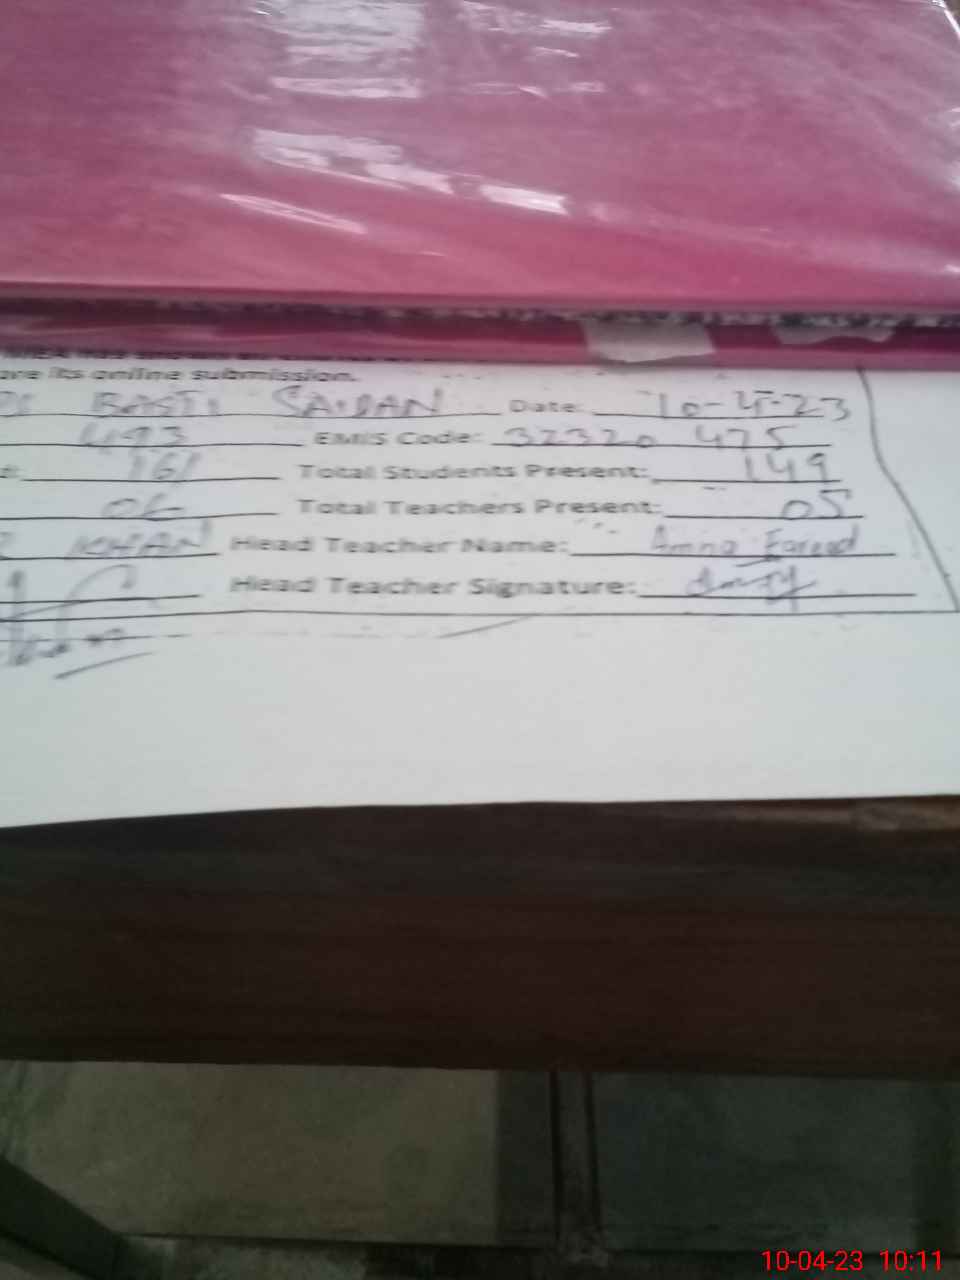 its online submission.
BASTI SAIDAN Date: 10-4-23
493 EMIS Code: 32320 475
161 Total Students Present: 149
Total Teachers Present: 05
KHAN Head Teacher Name: Amna Fareed
Head Teacher Signature:
10-04-23 10:11